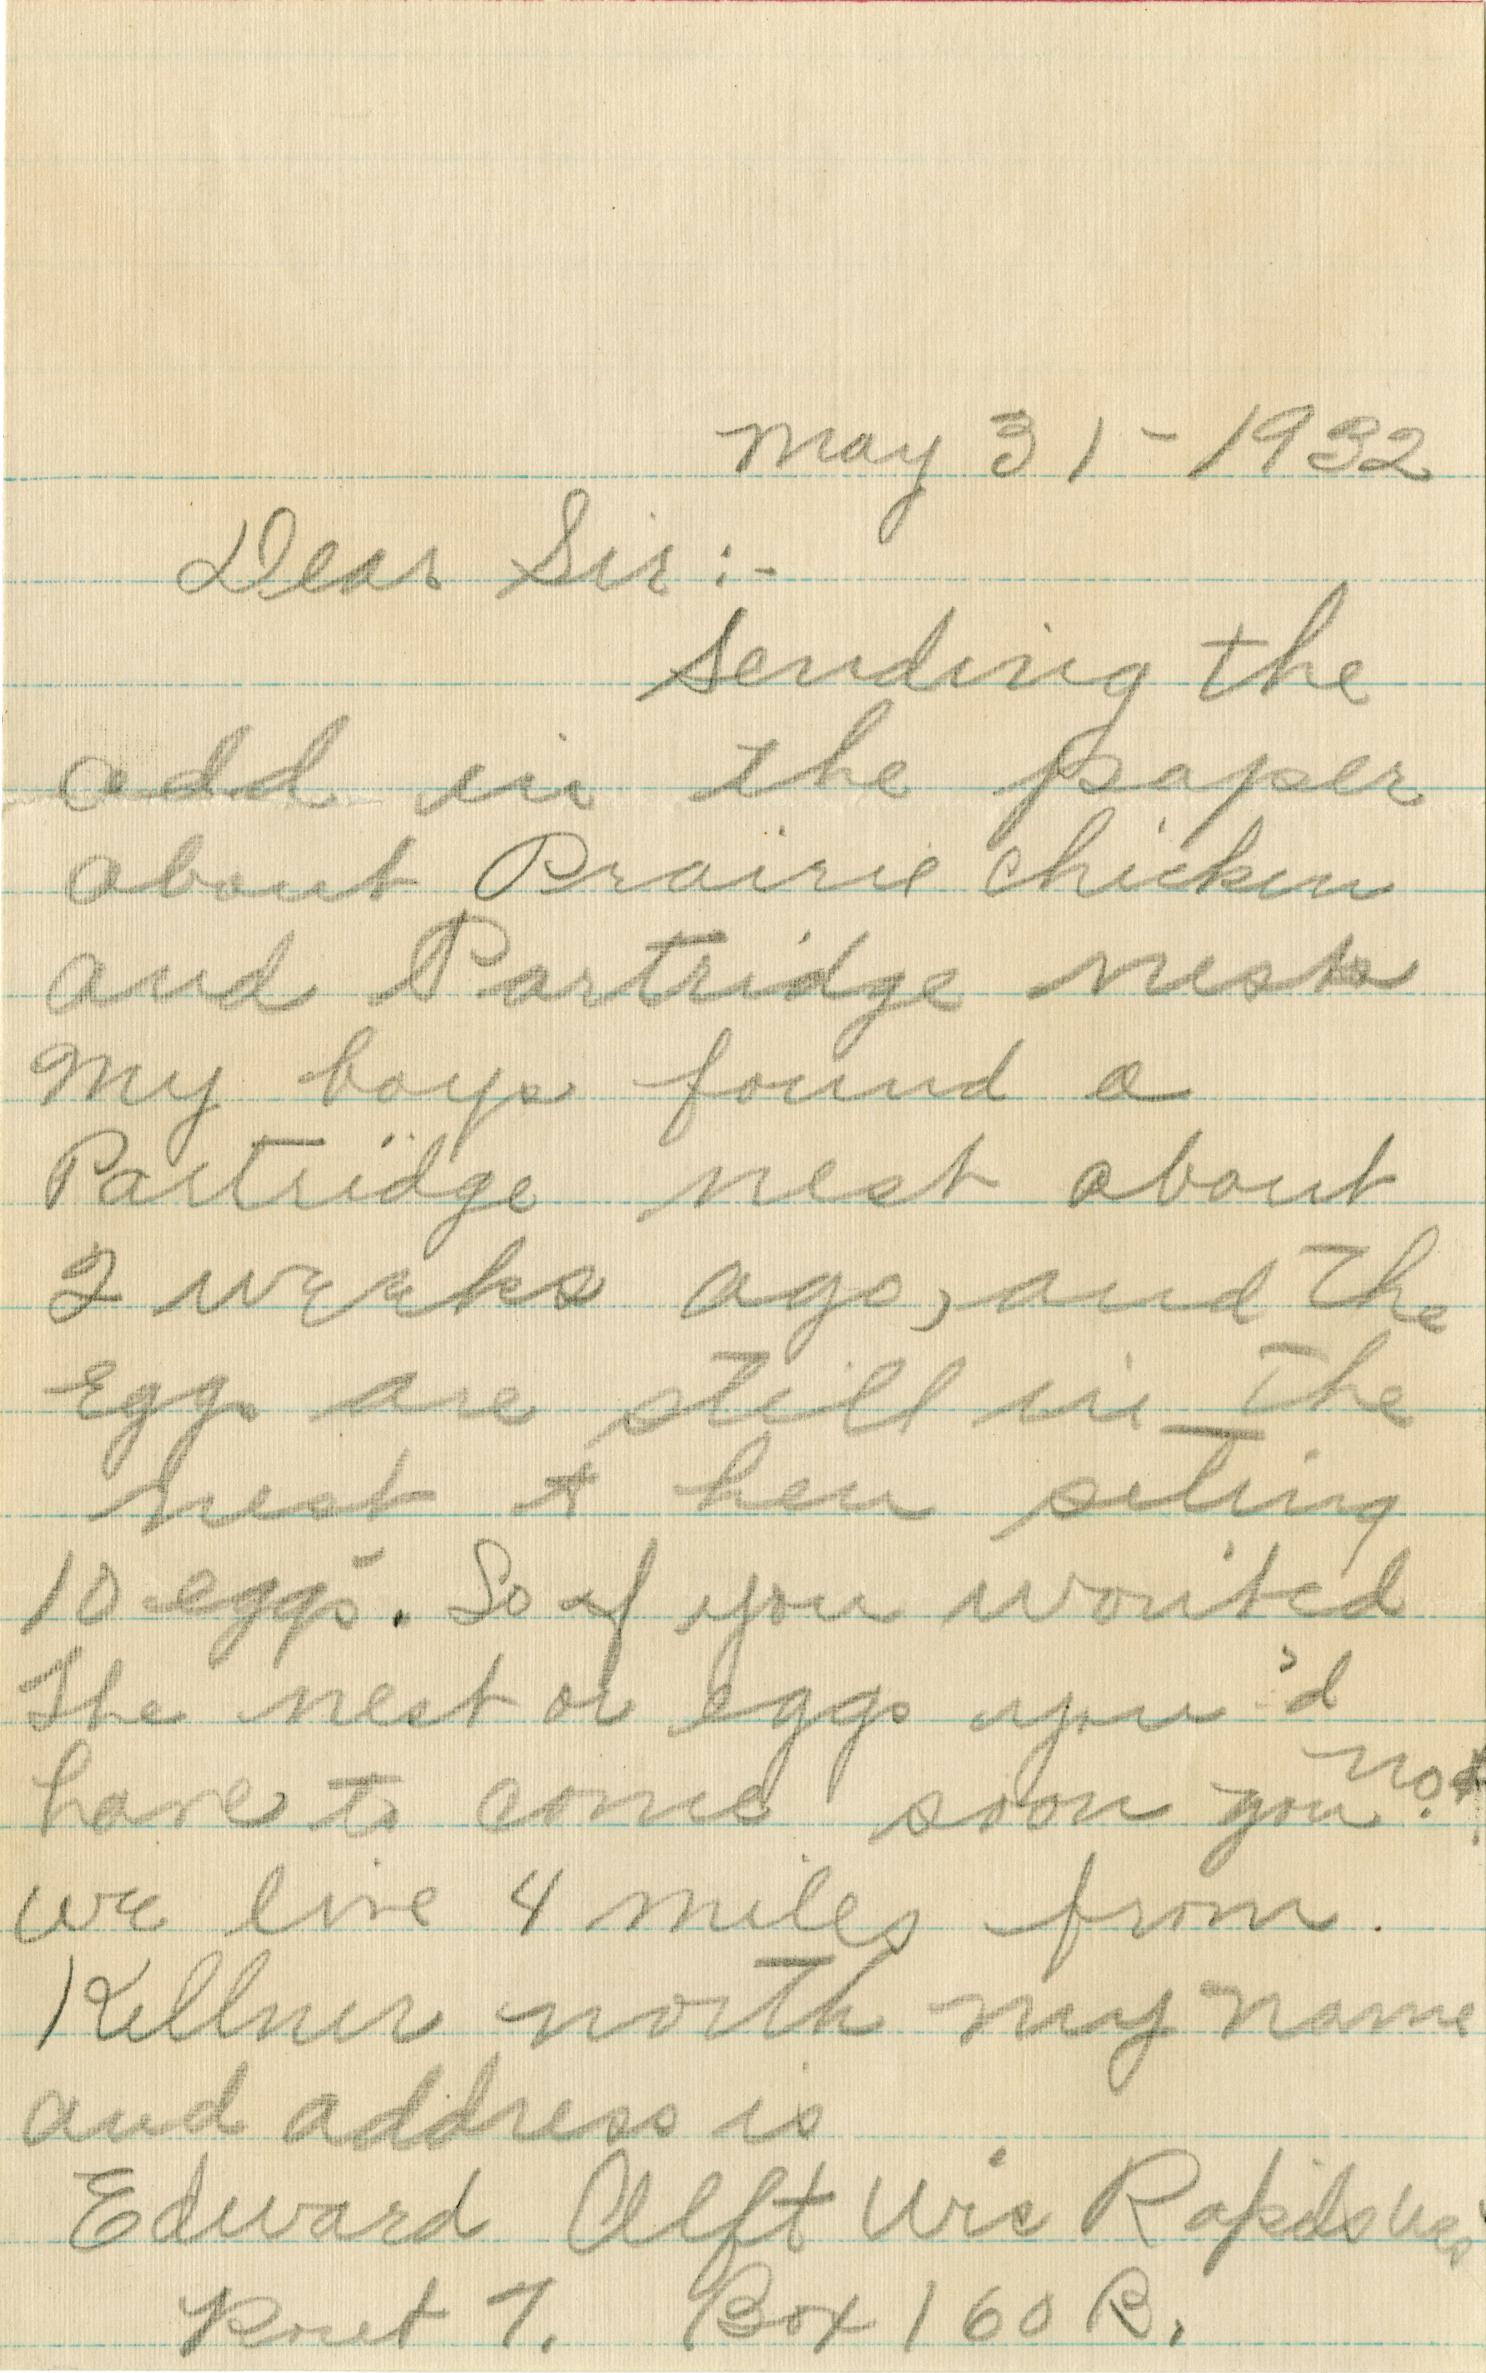 May 31 - 1932
Dear Sir :-
Sending the
add in the paper
about Prairie chicken
and Partridge nests
My boys found a
Partridge nest about
2 weeks ago, and the
eggs are still in the
nest & hen seting
10 eggs. So if you wonted
the nest or eggs you'd
have to come soon you not.
we live 4 miles from.
Kellner north my name
and address is
Edward Alft Wis Rapids Wis
Rout 7. Box 160 B.